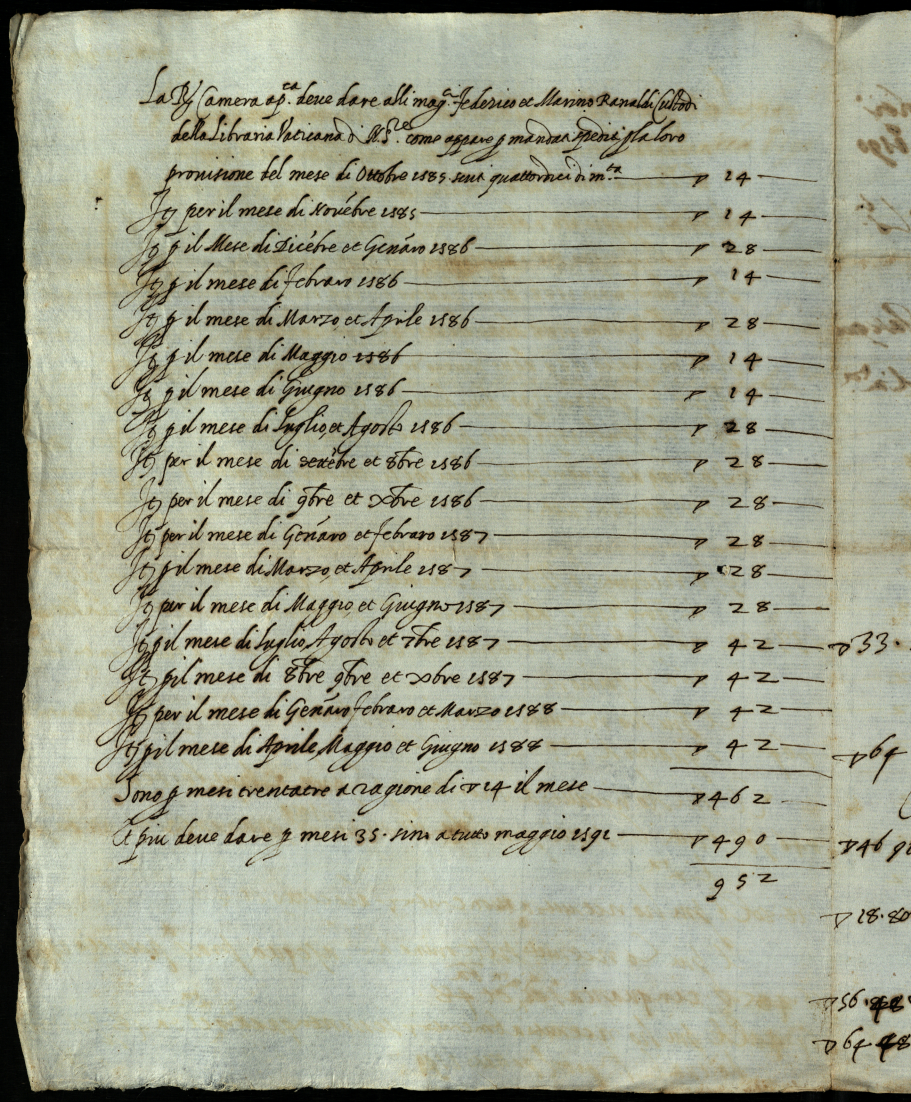 La R. Camera ap.ca deve dare alli mag.ci Federico et Marino Ranaldi Custodi
della Libraria Vaticana di N. S.re come appare p mandati spediti p la loro
provisione del mese di Ottobre 1585 scuti quattordici di m.ta — ▽ 14 —
It per il mese di Novēbre 1585 — ▽ 14 —
It p il Mese di Dicēbre et Genāro 1586 — ▽ 28 —
It p il mese di febraro 1586 — ▽ 14 —
It p il mese di Marzo et Aprile 1586 — ▽ 28 —
It p il mese di Maggio 1586 — ▽ 14 —
It p il mese di Giugno 1586 — ▽ 14 —
It p il mese di Luglio, et Agosto 1586 — ▽ 28 —
It per il mese di settēbre et 8bre 1586 — ▽ 28 —
It per il mese di 9bre et xbre 1586 — ▽ 28 —
It per il mese di Genāro et febraro 1587 — ▽ 28 —
It p il mese di Marzo, et Aprile 1587 — ▽ 28 —
It per il mese di Maggio, et Giugno 1587 — ▽ 28 —
It p il mese di Luglio Agosto et 7bre 1587 — ▽ 42 —
It p il mese di 8bre 9bre et xbre 1587 — ▽ 42 —
It per il mese di Genāro febraro et Marzo 1588 — ▽ 42 —
It p il mese di Aprile, Maggio et Giugno 1588 — ▽ 42 —
Sono p mesi trentatre a ragione di ▽ 14 il mese — ▽ 462 —
Et piu deve dare p mesi 35. sino a tutto maggio 1591 — ▽ 490 —
952
▽ 33.
▽ 64
▽ 46
▽ 18.80
▽ 56.
▽ 64